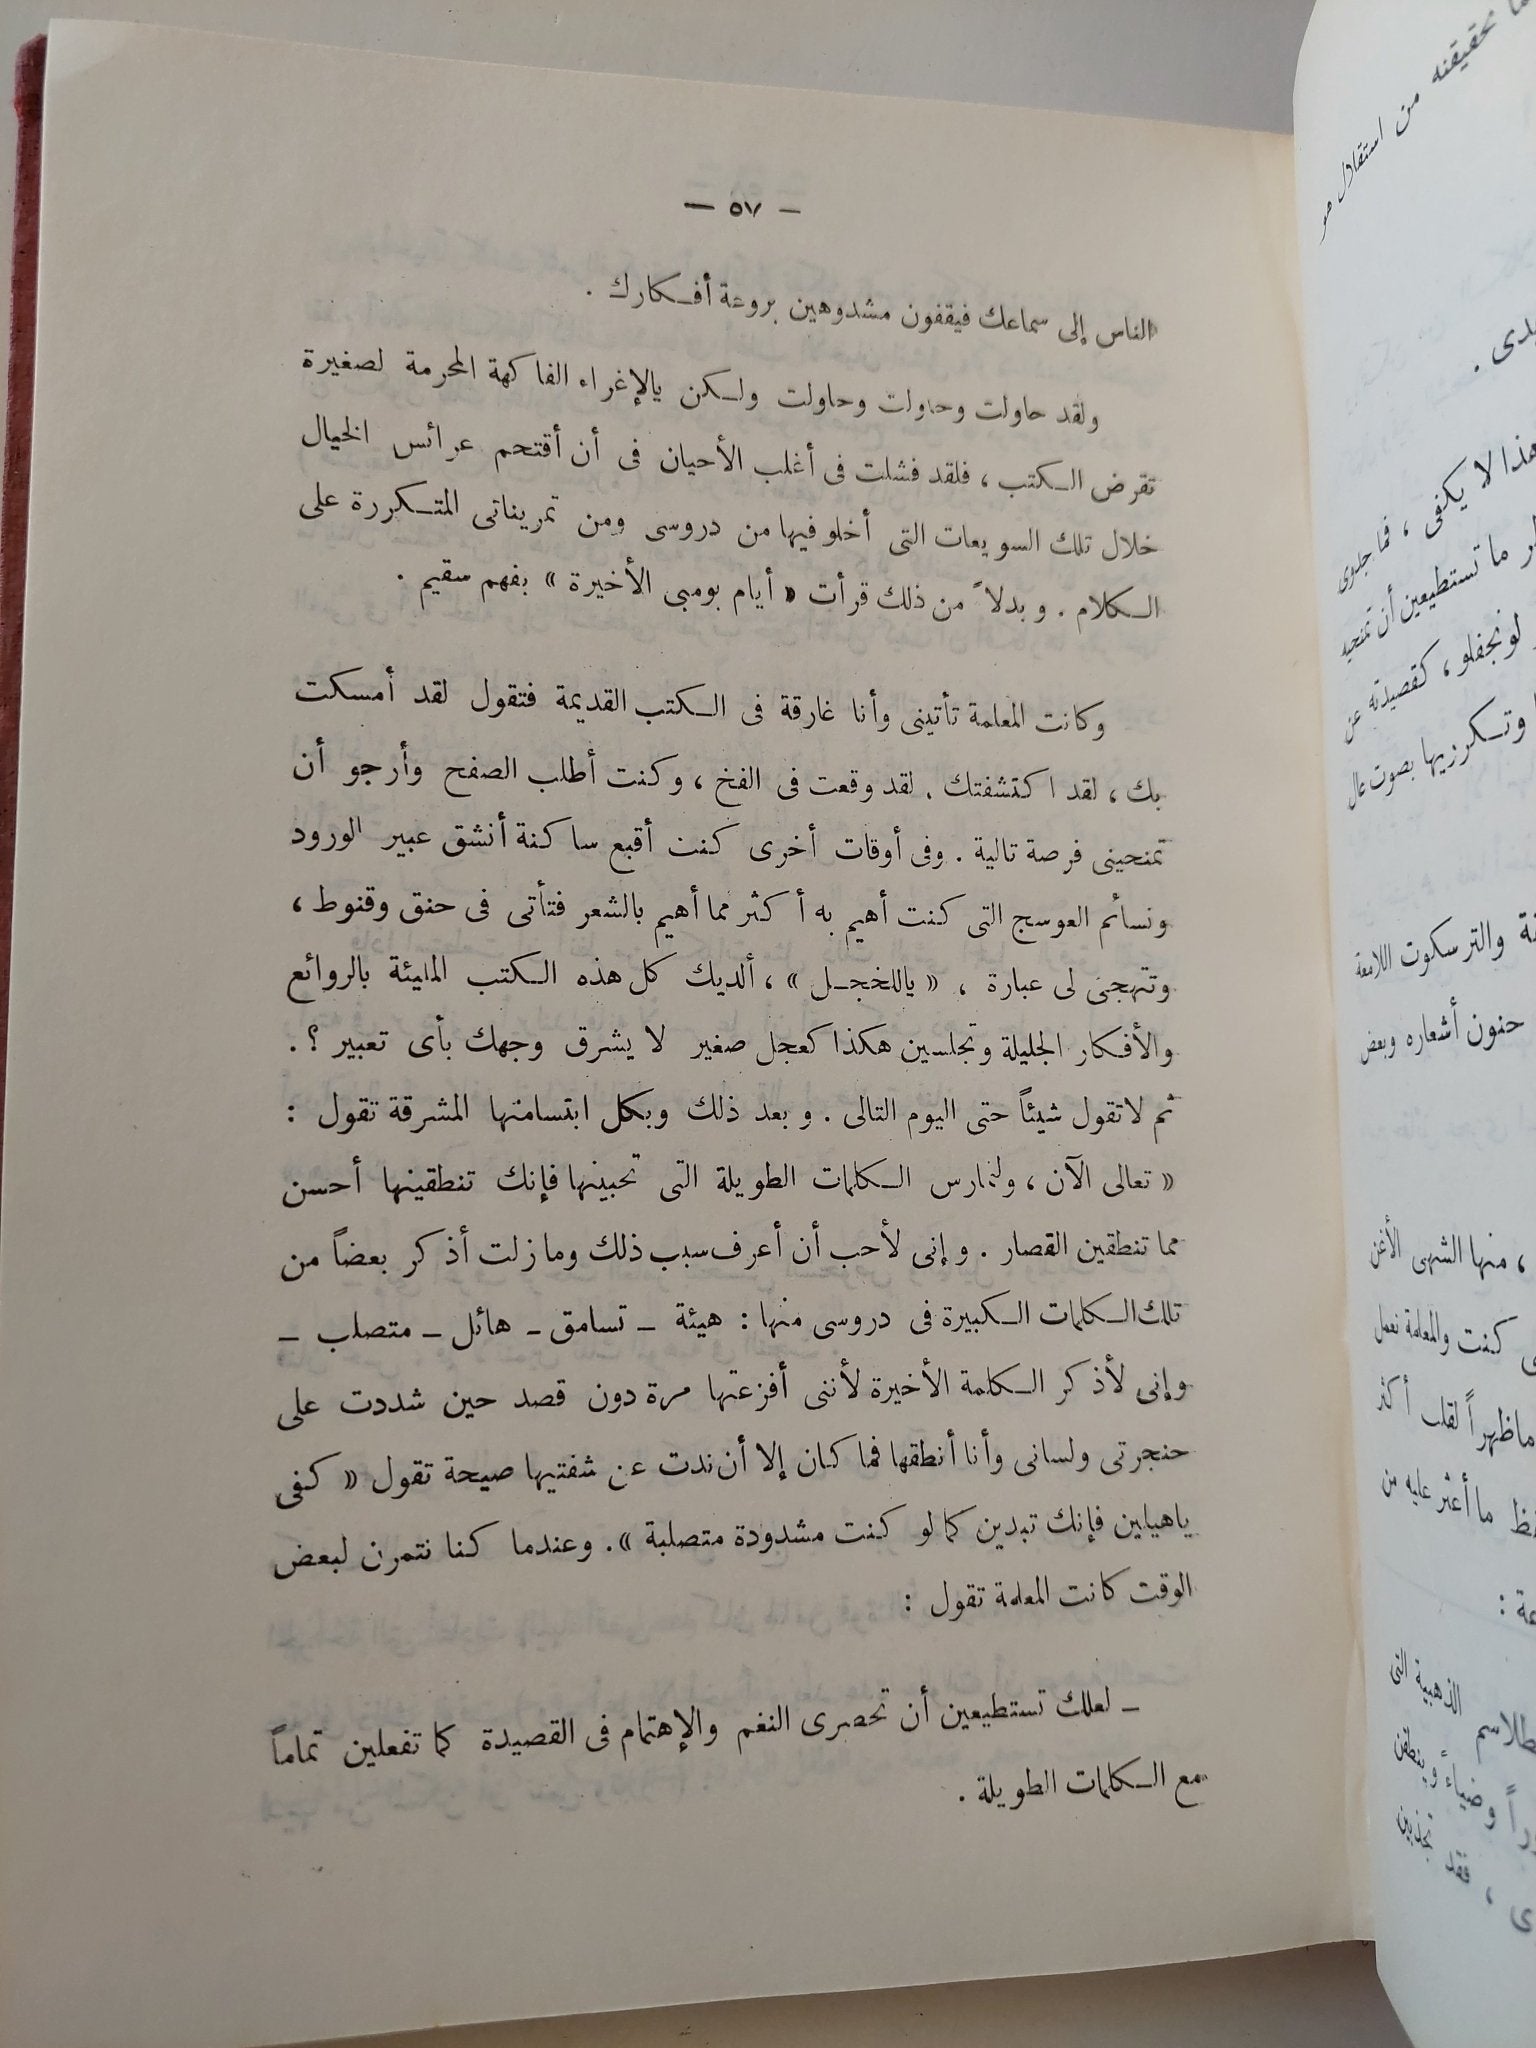 — ٥٧ —
الناس إلى سماعك فيقفون مشدوهين بروعة أفكارك .
ولقد حاولت وحاولت وحاولت ولكن يالإغراء الفاكهة المحرمة لصغيرة
تقرض الكتب ، فلقد فشلت فى أغلب الأحيان فى أن أقتحم عرائس الخيال
خلال تلك السويعات التى أخلو فيها من دروسى ومن تمريناتى المتكررة على
الكلام . وبدلاً من ذلك قرأت « أيام بومبى الأخيرة » بفهم سقيم .
وكانت المعلمة تأتينى وأنا غارقة فى الكتب القديمة فتقول لقد أمسكت
بك ، لقد اكتشفتك . لقد وقعت فى الفخ ، وكنت أطلب الصفح وأرجو أن
تمنحينى فرصة تالية . وفى أوقات أخرى كنت أقبع ساكنة أنشق عبير الورود
ونسائم العوسج التى كنت أهيم به أكثر مما أهيم بالشعر فتأتى فى حنق وقنوط ،
وتتهجى لى عبارة ، « ياللخجل » ، ألديك كل هذه الكتب المليئة بالروائع
والأفكار الجليلة وتجلسين هكذا كعجل صغير لا يشرق وجهك بأى تعبير ؟ .
ثم لا تقول شيئاً حتى اليوم التالى . وبعد ذلك وبكل ابتسامتها المشرقة تقول :
« تعالى الآن ، ولنمارس الكلمات الطويلة التى تحبينها فإنك تنطقينها أحسن
مما تنطقين القصار . وإنى لأحب أن أعرف سبب ذلك وما زلت أذكر بعضاً من
تلك الكلمات الكبيرة فى دروسى منها : هيئة – تسامق – هائل – متصلب –
وإنى لأذكر الكلمة الأخيرة لأننى أفزعتها مرة دون قصد حين شددت على
حنجرتى ولسانى وأنا أنطقها فما كان إلا أن ندت عن شفتيها صيحة تقول « كفى
ياهيلين فإنك تبدين كما لو كنت مشدودة متصلبة » . وعندما كنا نتمرن لبعض
الوقت كانت المعلمة تقول :
– لعلك تستطيعين أن تحصرى النغم والإهتمام فى القصيدة كما تفعلين تماماً
مع الكلمات الطويلة .
تحقيقنه من استقلال هو
هذا لا يكفى ، فما جدوى
ما تستطيعين أن تمنحيه
لونجفلو ، كقصيدته عن
وتكرزيها بصوت عال
والترسكوت اللامعة
حنون أشعاره وبعض
، منها الشهى الأغن
كنت والمعلمة نعمل
لقلب أكثر
ما أعثر عليه من
الذهبية التى
وضياءً وينطلقن
، فقد تجذبين